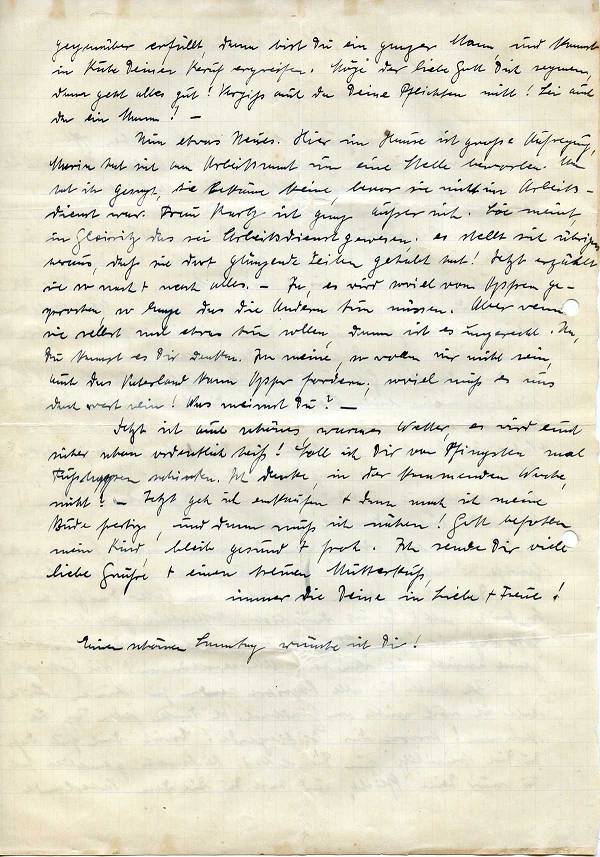 gegenüber erfüllt, dann bist Du ein ganzer Mann, und kannst
in Ruhe Deinen Beruf ergreifen. Möge der liebe Gott Dich segnen,
dann geht alles gut! Vergiss auch da Deine Pflichten nicht! Sei auch
da ein Mann! —
Nun etwas Neues. Hier im Hause ist große Aufregung,
Maria hat sich am Arbeitsamt um eine Stelle beworben. Man
hat ihr gesagt, sie bekäme keine, bevor sie nicht im Arbeits-
dienst war. Frau ist ganz außer sich. Sie meint,
in das sei Arbeitsdienst gewesen. es stellt sich übrigens
heraus, daß sie dort glänzende Zeiten gehabt hat! Jetzt erzählt
sie so nach + nach alles. — Ja, es wird soviel von Opfern ge-
sprochen, so lange das die Andern tun müssen. Aber wenn
sie selbst mal etwas tun sollen, dann ist es ungerecht. Na,
Du kannst es Dir denken. Ich meine, so wollen wir nicht sein,
auch das Vaterland kann Opfer fordern, soviel muß es uns
doch wert sein! Was meinst Du? —
Jetzt ist auch schönes warmes Wetter, es wird auch
sicher schon ordentlich heiß! Soll ich Dir vor Pfingsten mal
schicken. Ich denke, in der kommenden Woche,
nicht? — Jetzt geh ich einkaufen + dann mach ich meine
Bude fertig, und dann muß ich nähen! Gott befohlen
mein Kind, bleib gesund + froh. Ich sende Dir viele
liebe Grüße + einen treuen Mutterkuß,
immer die Deine in Liebe + Treue!
Einen schönen Sonntag wünsche ich Dir!